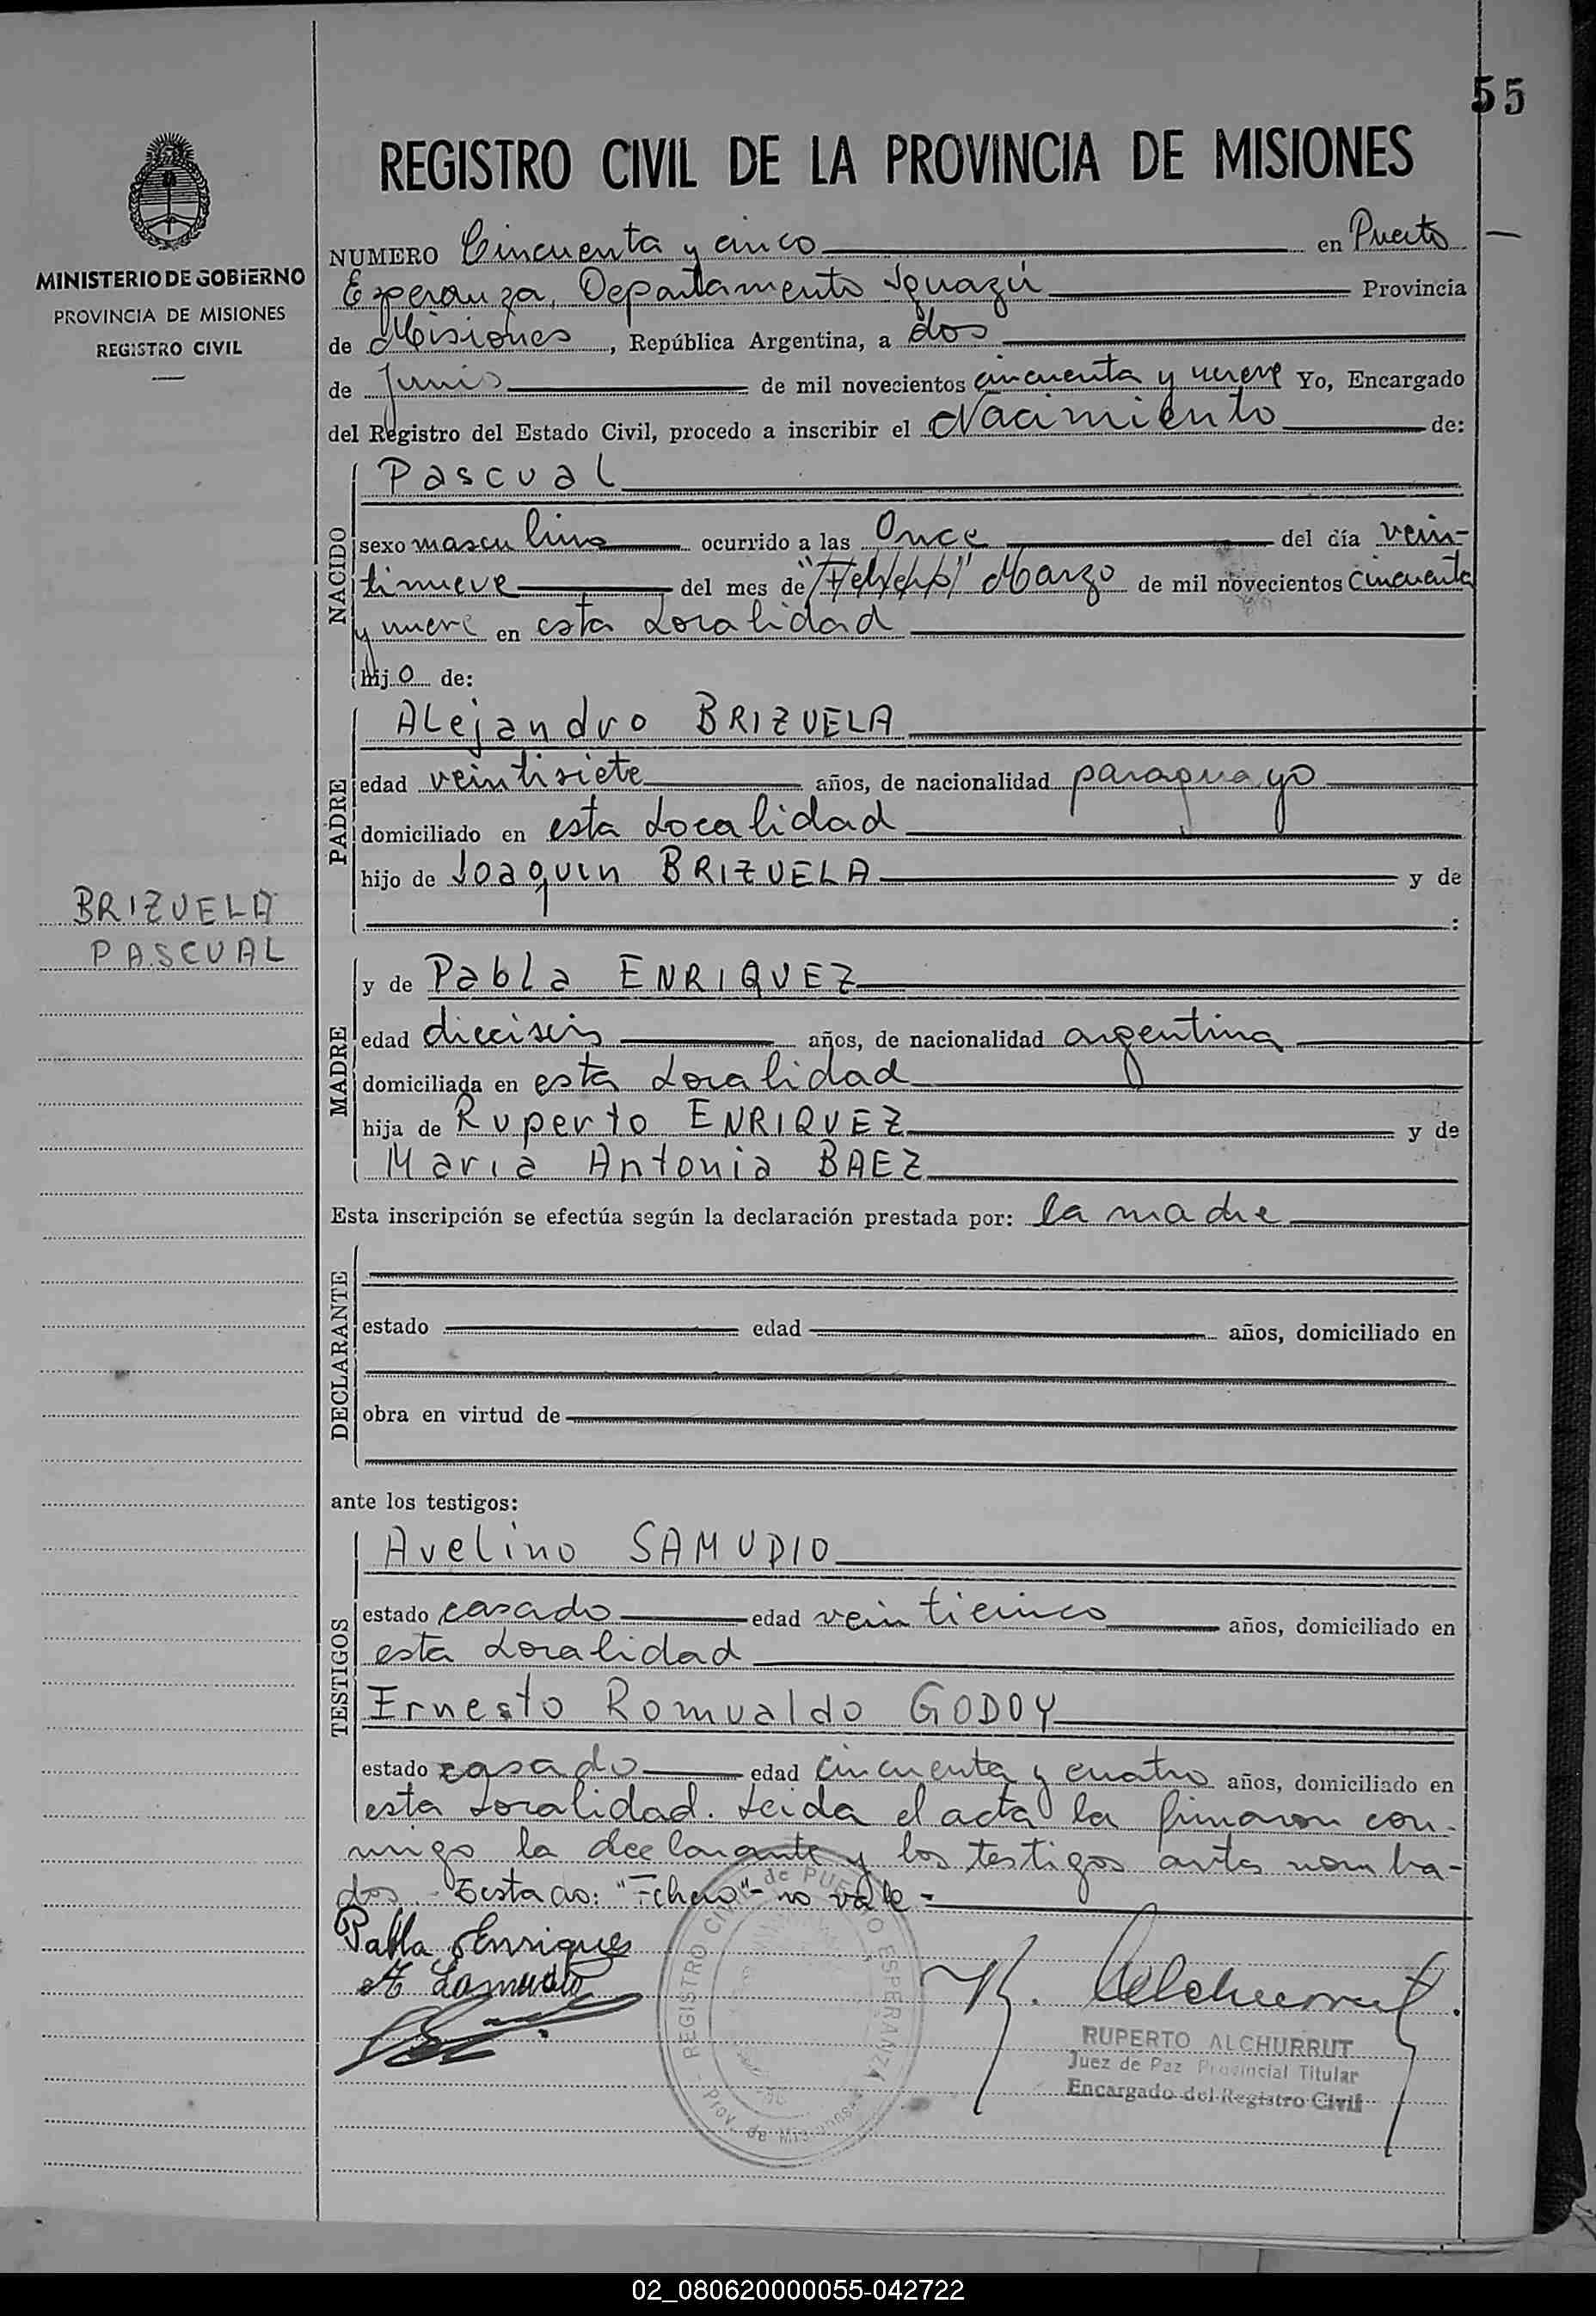 55
REGISTRO CIVIL DE LA PROVINCIA DE MISIONES
MINISTERIO DE GOBIERNO
PROVINCIA DE MISIONES
REGISTRO CIVIL
NUMERO Cincuenta y cinco en Puerto
Esperanza, Departamento Iguazú Provincia
de Misiones, República Argentina, a dos
de Junio de mil novecientos cincuenta y nueve Yo, Encargado
del Registro del Estado Civil, procedo a inscribir el Nacimiento de:
NACIDO
Pascual
sexo masculino ocurrido a las Once del día vein-
tinueve del mes de "Febrero" Marzo de mil novecientos cincuenta
y nueve en esta Localidad
hijo de:
PADRE
Alejandro BRIZUELA
edad veintisiete años, de nacionalidad paraguayo
domiciliado en esta Localidad
hijo de Joaquin BRIZUELA y de
:
BRIZUELA
PASCUAL
MADRE
y de Pabla ENRIQUEZ
edad dieciseis años, de nacionalidad argentina
domiciliada en esta Localidad
hija de Ruperto ENRIQUEZ y de
Maria Antonia BAEZ
Esta inscripción se efectúa según la declaración prestada por: la madre
DECLARANTE
estado edad años, domiciliado en
obra en virtud de
ante los testigos:
TESTIGOS
Avelino SAMUDIO
estado casado edad veinticinco años, domiciliado en
esta Localidad
Ernesto Romualdo GODOY
estado casado edad cincuenta y cuatro años, domiciliado en
esta Localidad. Leida el acta la firmaron con-
migo la declarante y los testigos antes nombra-
dos - Testado: - no vale -
Pabla Enriques
A Samudio
R. Alchurrut
REGISTRO CIVIL de PUERTO ESPERANZA
Prov. de Misiones
RUPERTO ALCHURRUT
Juez de Paz Provincial Titular
Encargado del Registro Civil
02_080620000055-042722